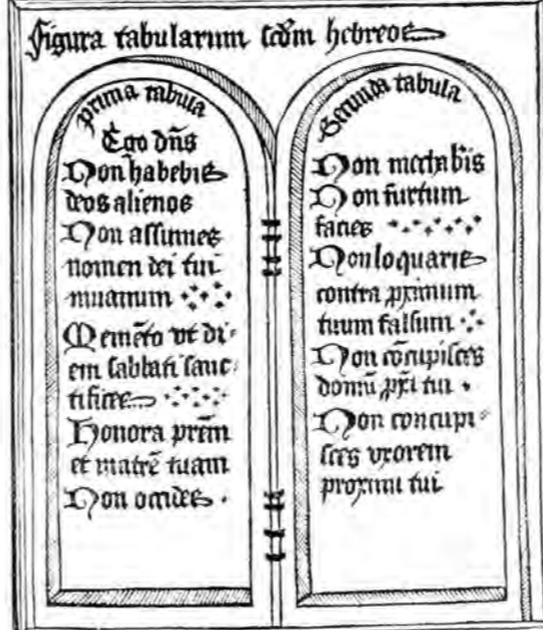 Figura tabularum scd̄m hebreos
prima tabula
Ego dn̄s
Non habebis
deos alienos
Non assumes
nomen dei tui
inuanum
Memēto vt di-
em sabbati sanc-
tifices
Honora prēm
et matrē tuam
Non occides
Secunda tabula
Non mechab'is
Non furtum
facies
Non loquaris
contra ꝓximum
tuum falsum
Non cōcupisces
domū ꝓxi tui
Non concupi-
sces vxorem
proximi tui